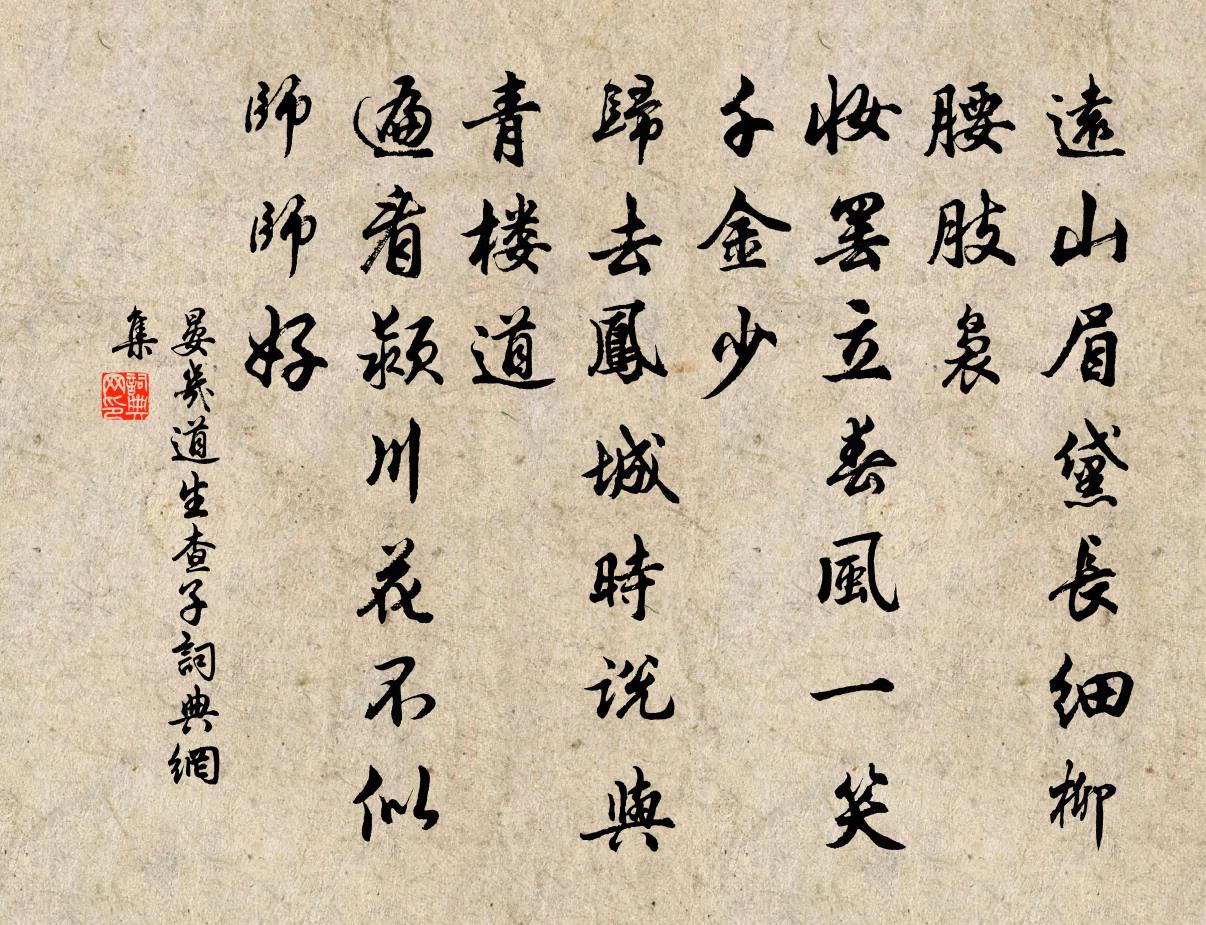 遠山眉黛長細柳
腰肢裊
妝罷立春風一笑
千金少
歸去鳳城時説與
青楼道
遍看颍川花不似
師師好
晏幾道生查子詞典網
集
詞典網印